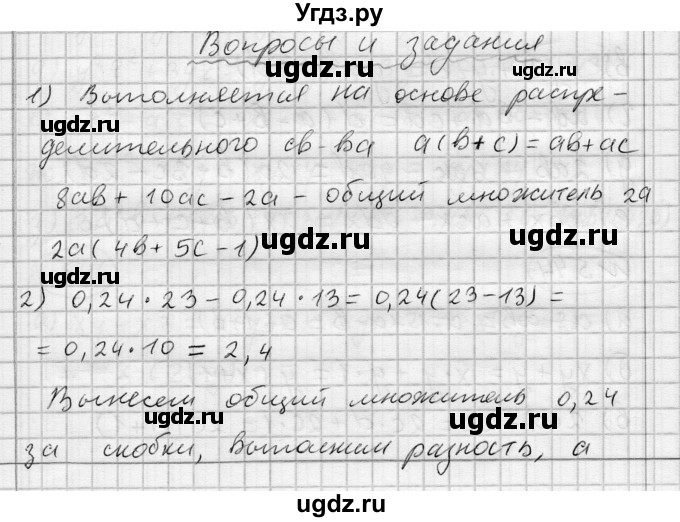 Угдз.ру
Вопросы и задания
1) Выполняется на основе распре-
делительного св-ва a(b+c)=ab+ac
8ab+10ac-2a - общий множитель 2a
2a(4b+5c-1)
2) 0,24·23-0,24·13=0,24(23-13)=
=0,24·10=2,4
Вынесем общий множитель 0,24
за скобки, выполним разность, а
ugdz.ru
ugdz.ru
ugdz.ru
ugdz.ru
ugdz.ru
ugdz.ru
ugdz.ru
ugdz.ru
ugdz.ru
ugdz.ru
ugdz.ru
ugdz.ru